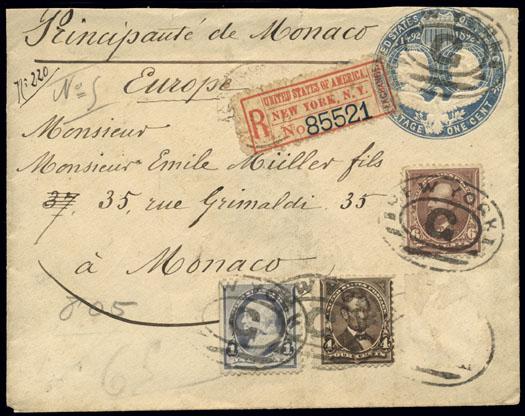 Principauté de Monaco
UNITED STATES
1492 1892
POSTAGE ONE CENT
No 220
No 5
Europe
UNITED STATES OF AMERICA.
NEW YORK, N.Y.
R No 85521
Monsieur
Monsieur Emile Müller fils
37, 35, rue Grimaldi 35
à Monaco
NEW YORK
G
805
1
4
4